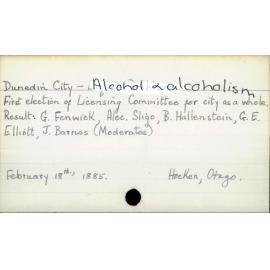 Dunedin City - Alcohol & alcoholism
First election of Licensing Committee for city as a whole.
Result: G. Fenwick, Alec. Sligo, B. Hallenstein, G. E.
Elliott, J. Barnes (Moderates)
February 18th, 1885. Hocken, Otago.